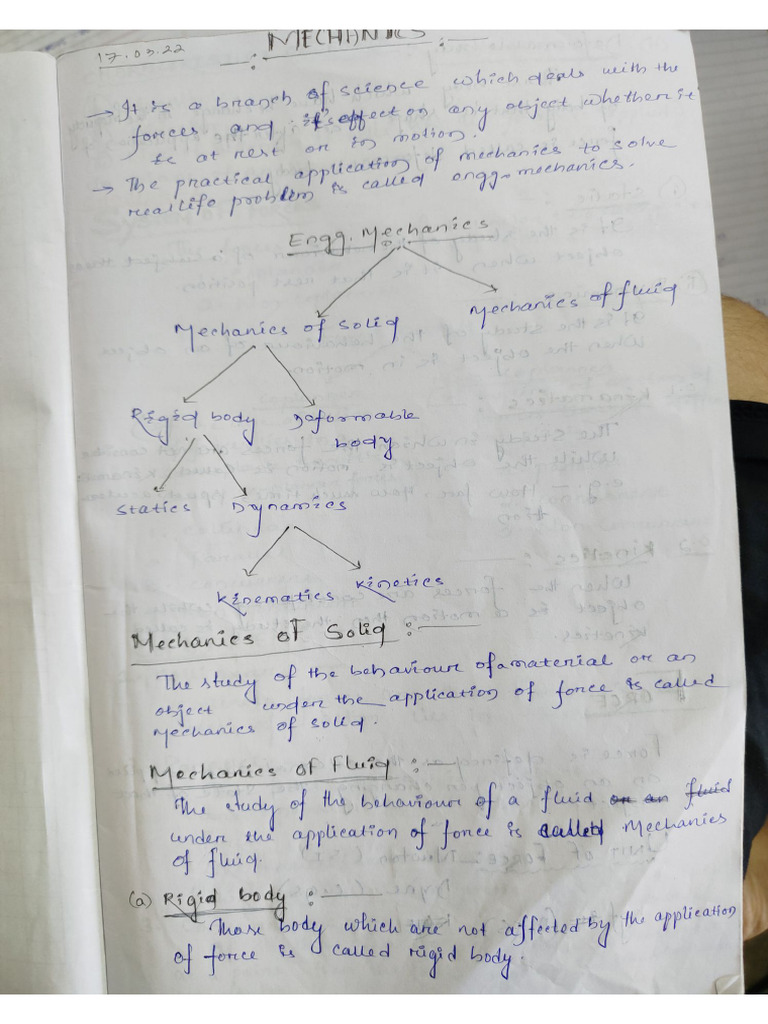 17.03.22
—: MECHANICS :—
→ It is a branch of science which deals with the
forces and its effect on any object whether it
be at rest or in motion.
→ The practical application of mechanics to solve
real life problem is called engg. mechanics.
Engg. Mechanics
Mechanics of Solid Mechanics of fluid
Rigid body Deformable
body
Statics Dynamics
Kinematics Kinetics
Mechanics of Solid :—
The study of the behaviour of a material or an
object under the application of force is called
Mechanics of solid.
Mechanics of Fluid :—
The study of the behaviour of a fluid or an fluid
under the application of force is called Mechanics
of fluid.
(a) Rigid body :—
Those body which are not affected by the application
of force is called rigid body.